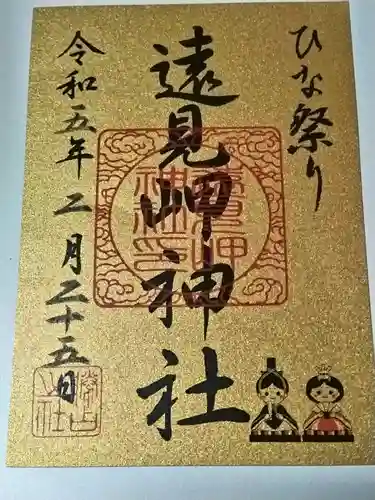 ひな祭り
遠見岬神社
令和五年二月二十五日